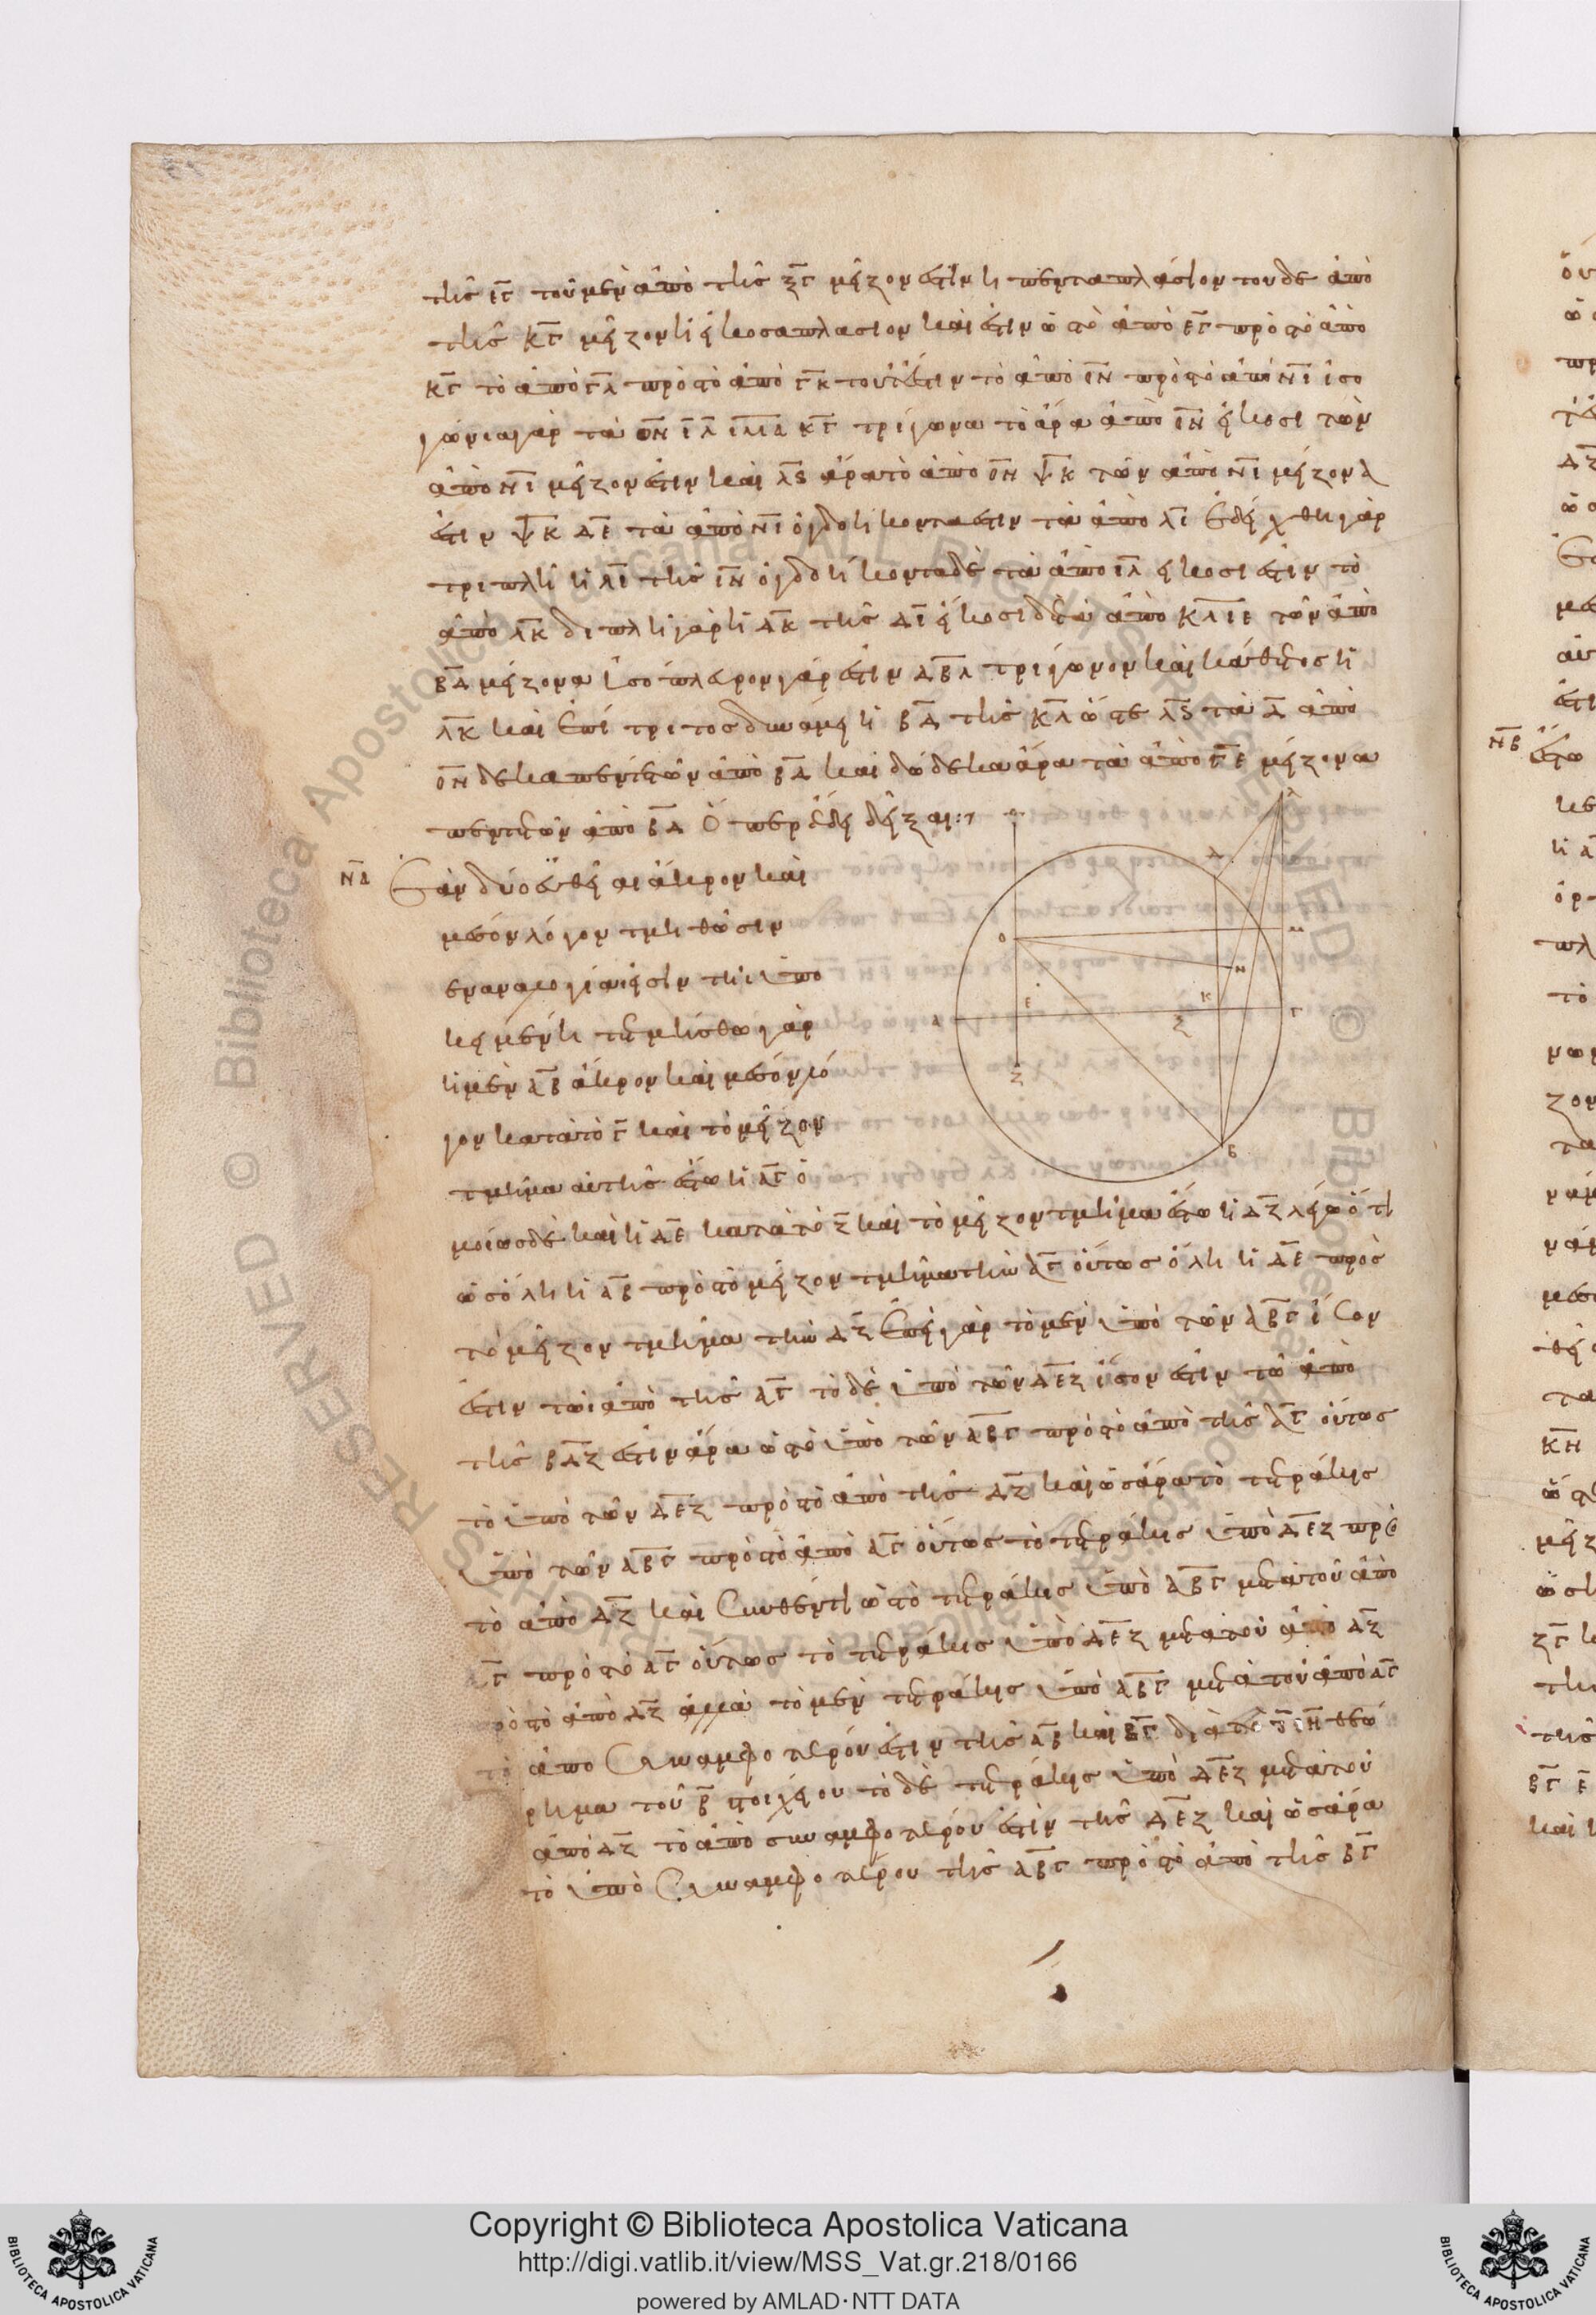 τῆς ΕΓ τοῦ μὲν ἀπὸ τῆς ΞΓ μεῖζον ἐστὶν ἢ πενταπλάσιον τοῦ δὲ ἀπὸ
τῆς ΚΓ μεῖζον ἢ εἰκοσαπλάσιον καὶ ἔστιν ὡς τὸ ἀπὸ ΕΓ πρὸς τὸ ἀπὸ
ΚΓ τὸ ἀπὸ ΓΛ πρὸς τὸ ἀπὸ ΓΚ τουτέστιν τὸ ἀπὸ ΙΝ πρὸς τὸ ἀπὸ ΝΙ ἰσο
γώνια γὰρ τὰ ΟΝ ΙΛ ΚΓ τρίγωνα τὸ ἄρα ἀπὸ ΙΝ εἴκοσι τῶν
ἀπὸ ΝΙ μεῖζον ἐστὶν καὶ ΛϚ ἄρα τὸ ἀπὸ ΟΝ ΨΚ τῶν ἀπὸ ΝΙ μείζονα
ἐστιν ΨΚ ΔΕ τὰ ἀπὸ ΝΙ ὀγδοήκοντα ἐστιν τὰ ἀπὸ ΛΙ ἐδείχθη γὰρ
τριπλῆ ἡ ΛΙ τῆς ΙΝ ὀγδοήκοντα δὲ τὰ ἀπὸ ΙΛ εἴκοσι ἐστὶν τὸ
ἀπὸ ΛΚ διπλῆ γὰρ ἡ ΔΚ τῆς ΔΙ εἴκοσι δὲ τὰ ἀπὸ ΚΛ ΙΕ τῶν ἀπὸ
ΒΔ μείζονα ἰσόπλευρον γάρ ἐστιν ΔΒΛ τρίγωνον καὶ κάθετος ἡ
ΛΚ καὶ ἐπίτριτος δυνάμει ἡ ΒΔ τῆς ΚΛ ὥστε ΛϚ τὰ Δ ἀπὸ
ΟΝ δεκαπέντε τῶν ἀπὸ ΒΔ καὶ δώδεκα ἄρα τὰ ἀπὸ ΓΕ μείζονα
πέντε τῶν ἀπὸ ΒΔ Ὅπερ ἔδει δεῖξαι:
ΝΔ Ἐὰν δύο εὐθεῖαι ἄκρον καὶ
μέσον λόγον τμηθῶσιν
ἐν ἀναλογίᾳ εἰσὶν τῆι ὑπο
κειμένῃ τετμήσθω γὰρ
ἡ μὲν ΑΒ ἄκρον καὶ μέσον λό
γον κατὰ τὸ Γ καὶ τὸ μεῖζον
τμῆμα αὐτῆς ἔστω ἡ ΑΓ ὁ
μοίως δὲ καὶ ἡ ΔΕ κατὰ τὸ Ζ καὶ τὸ μεῖζον τμῆμα ἔστω ἡ ΔΖ λέγω ὅτι
ὡς ὅλη ἡ ΑΒ πρὸς τὸ μεῖζον τμῆμα τὴν ΑΓ οὕτως ὅλη ἡ ΔΕ πρὸς
τὸ μεῖζον τμῆμα τὴν ΔΖ Ἐπεὶ γὰρ τὸ μὲν ὑπὸ τῶν ΑΒΓ ἴσον
ἐστὶν τῶι ἀπὸ τῆς ΑΓ τὸ δὲ ὑπὸ τῶν ΔΕΖ ἴσον ἐστὶν τῶ ἀπὸ
τῆς ΔΖ ἔστιν ἄρα ὡς τὸ ὑπὸ τῶν ΑΒΓ πρὸς τὸ ἀπὸ τῆς ΑΓ οὕτως
τὸ ὑπὸ τῶν ΔΕΖ πρὸς τὸ ἀπὸ τῆς ΔΖ καὶ ὡς ἄρα τὸ τετράκις
ὑπὸ τῶν ΑΒΓ πρὸς τὸ ἀπὸ ΑΓ οὕτως τὸ τετράκις ὑπὸ ΔΕΖ πρὸς
τὸ ἀπὸ ΔΖ καὶ συνθέντι ὡς τὸ τετράκις ὑπὸ ΑΒΓ μετὰ τοῦ ἀπὸ
ΑΓ πρὸς τὸ ΑΓ οὕτως τὸ τετράκις ὑπὸ ΔΕΖ μετὰ τοῦ ἀπὸ ΔΖ
πρὸς τὸ ἀπὸ ΔΖ ἀλλὰ τὸ μὲν τετράκις ὑπὸ ΑΒΓ μετὰ τοῦ ἀπὸ ΑΓ
τὸ ἀπὸ συναμφοτέρου ἐστὶν τῆς ΑΒ καὶ ΒΓ διὰ τὸ Η θεώ
ρημα τοῦ Β στοιχείου τὸ δὲ τετράκις ὑπὸ ΔΕΖ μετὰ τοῦ
ἀπὸ ΔΖ τὸ ἀπὸ συναμφοτέρου ἐστὶν τῆς ΔΕΖ καὶ ὡς ἄρα
τὸ ὑπὸ συναμφοτέρου τῆς ΑΒΓ πρὸς τὸ ἀπὸ τῆς ΒΓ
Λ
Δ
Ο
Μ
Ν
Ε
Κ
Α
Ξ
Γ
Ζ
Β
ΝΒ
Copyright © Biblioteca Apostolica Vaticana
http://digi.vatlib.it/view/MSS_Vat.gr.218/0166
powered by AMLAD·NTT DATA
BIBLIOTECA APOSTOLICA VATICANA
BIBLIOTECA APOSTOLICA VATICANA